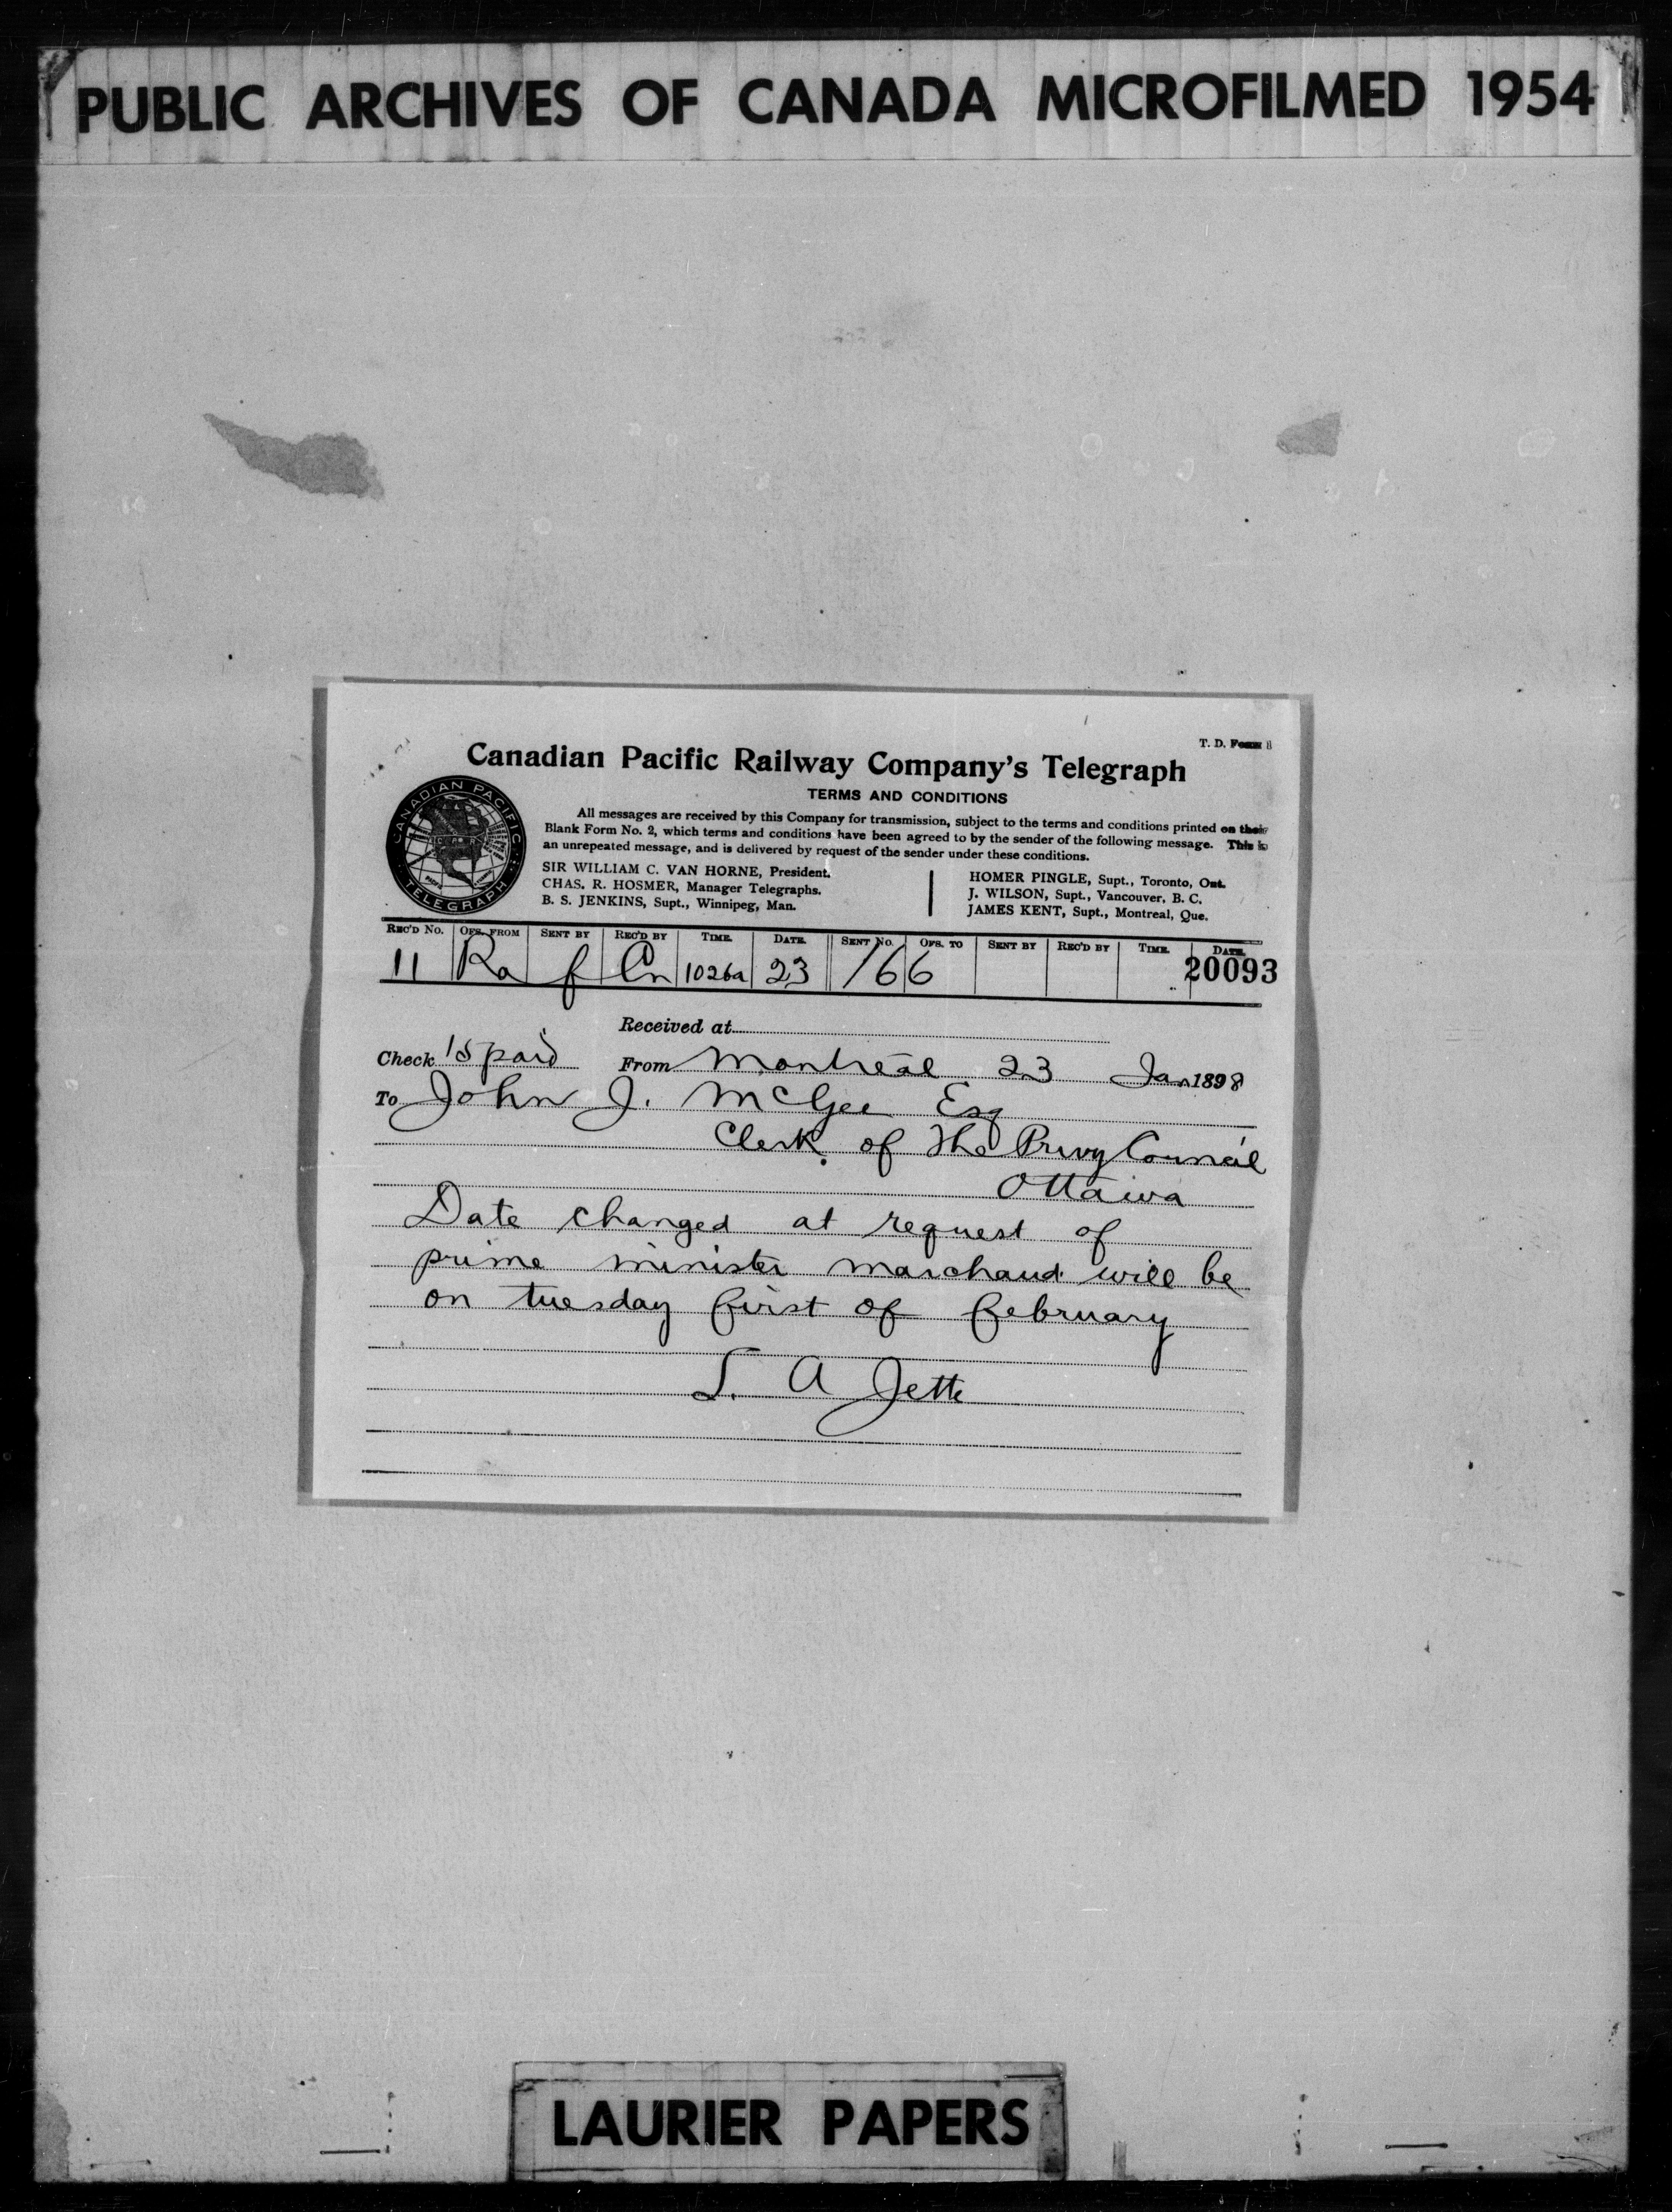 PUBLIC ARCHIVES OF CANADA MICROFILMED 1954
T. D. Form 8
Canadian Pacific Railway Company's Telegraph
TERMS AND CONDITIONS
CANADIAN PACIFIC
TELEGRAPH
All messages are received by this Company for transmission, subject to the terms and conditions printed on their
Blank Form No. 2, which terms and conditions have been agreed to by the sender of the following message. This is
an unrepeated message, and is delivered by request of the sender under these conditions.
SIR WILLIAM C. VAN HORNE, President.
CHAS. R. HOSMER, Manager Telegraphs.
B. S. JENKINS, Supt., Winnipeg, Man.
HOMER PINGLE, Supt., Toronto, Ont.
J. WILSON, Supt., Vancouver, B. C.
JAMES KENT, Supt., Montreal, Que.
REC'D NO. OFS. FROM SENT BY REC'D BY TIME. DATE. SENT NO. OFS. TO SENT BY REC'D BY TIME. DATE.
11 Ra f Cn 1026a 23 166 20093
Received at
Check 15 paid From Montreal 23 Jan 1898
To John J. McGee Esq
Clerk of the Privy Council
Ottawa
Date changed at request of
prime minister marchand will be
on tuesday first of february
L. A Jette
LAURIER PAPERS